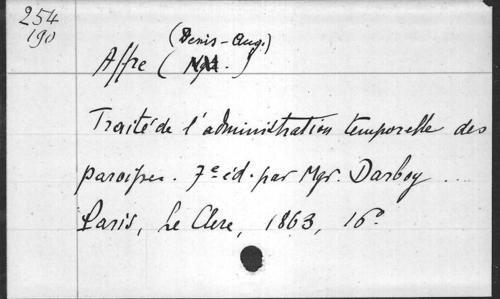 254
190
(Denis-Aug.)
Affre (Mgr.)
Traité de l'administration temporelle des
paroisses. 7e éd. par Mgr. Darboy ...
Paris, Le Clere, 1863, 16°